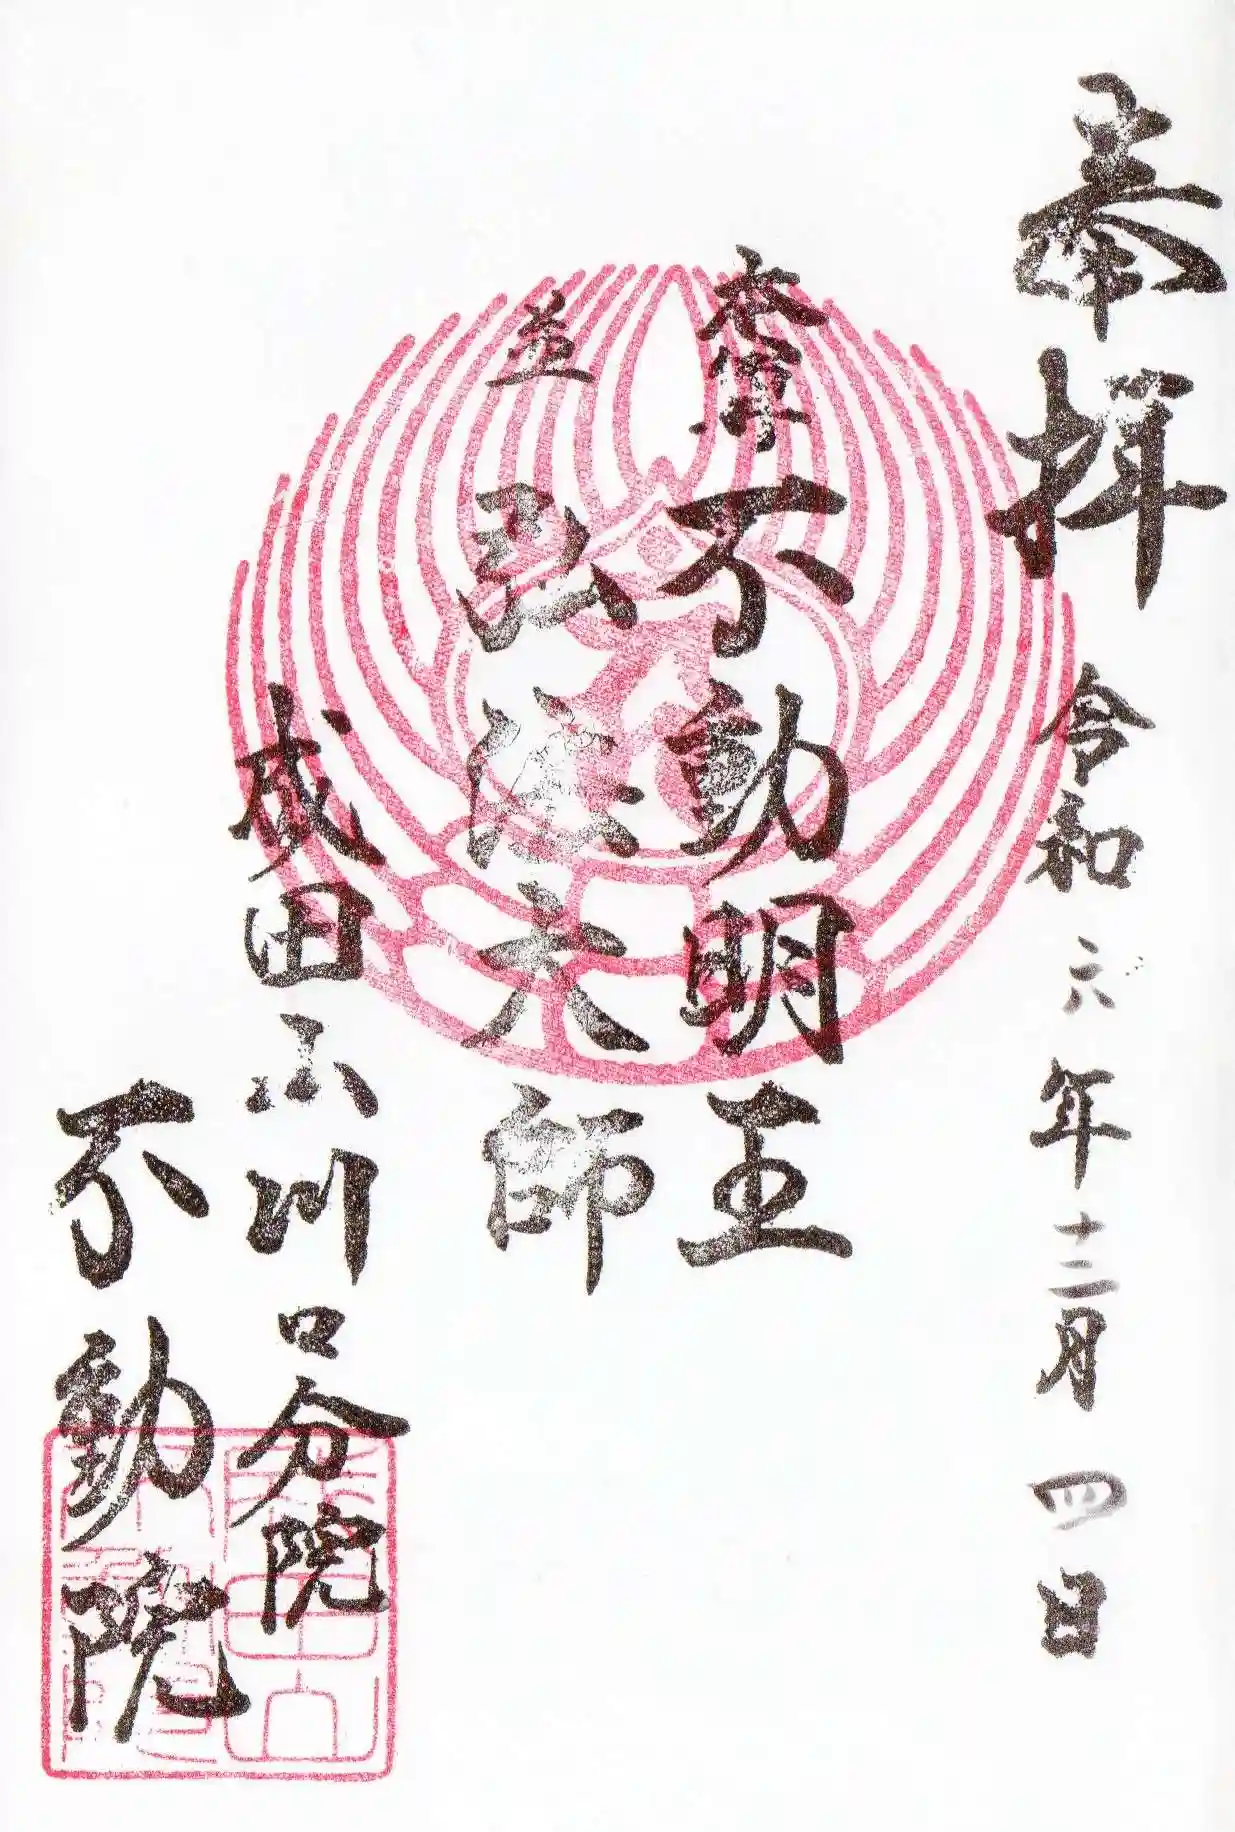 奉拝 令和六年十二月四日
不動明王
並 大師
成田山川口分院
不動院